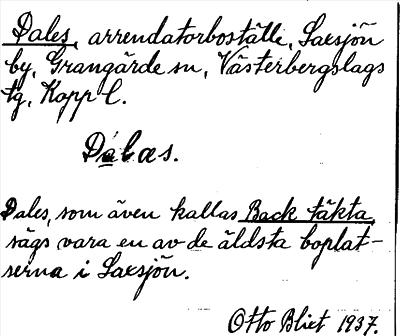 Dales, arrendatorboställe, Saxsjön
by, Grangärde sn, Västerbergslags
tg, Kopp l.
Dalæs.
Dales, som även kallas Back täkta
sägs vara en av de äldsta boplat-
serna i Saxsjön.
Otto Blixt 1937.